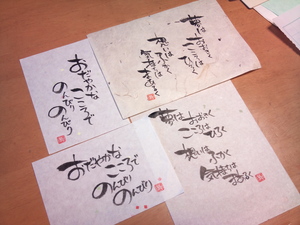 おだやかな
こころで
のんびり
のんびり
夢は おおきく
こころは ひろく
想いは ふかく
おだやかな
こころで
のんびり
のんびり
夢は おおきく
こころは ひろく
想いは ふかく